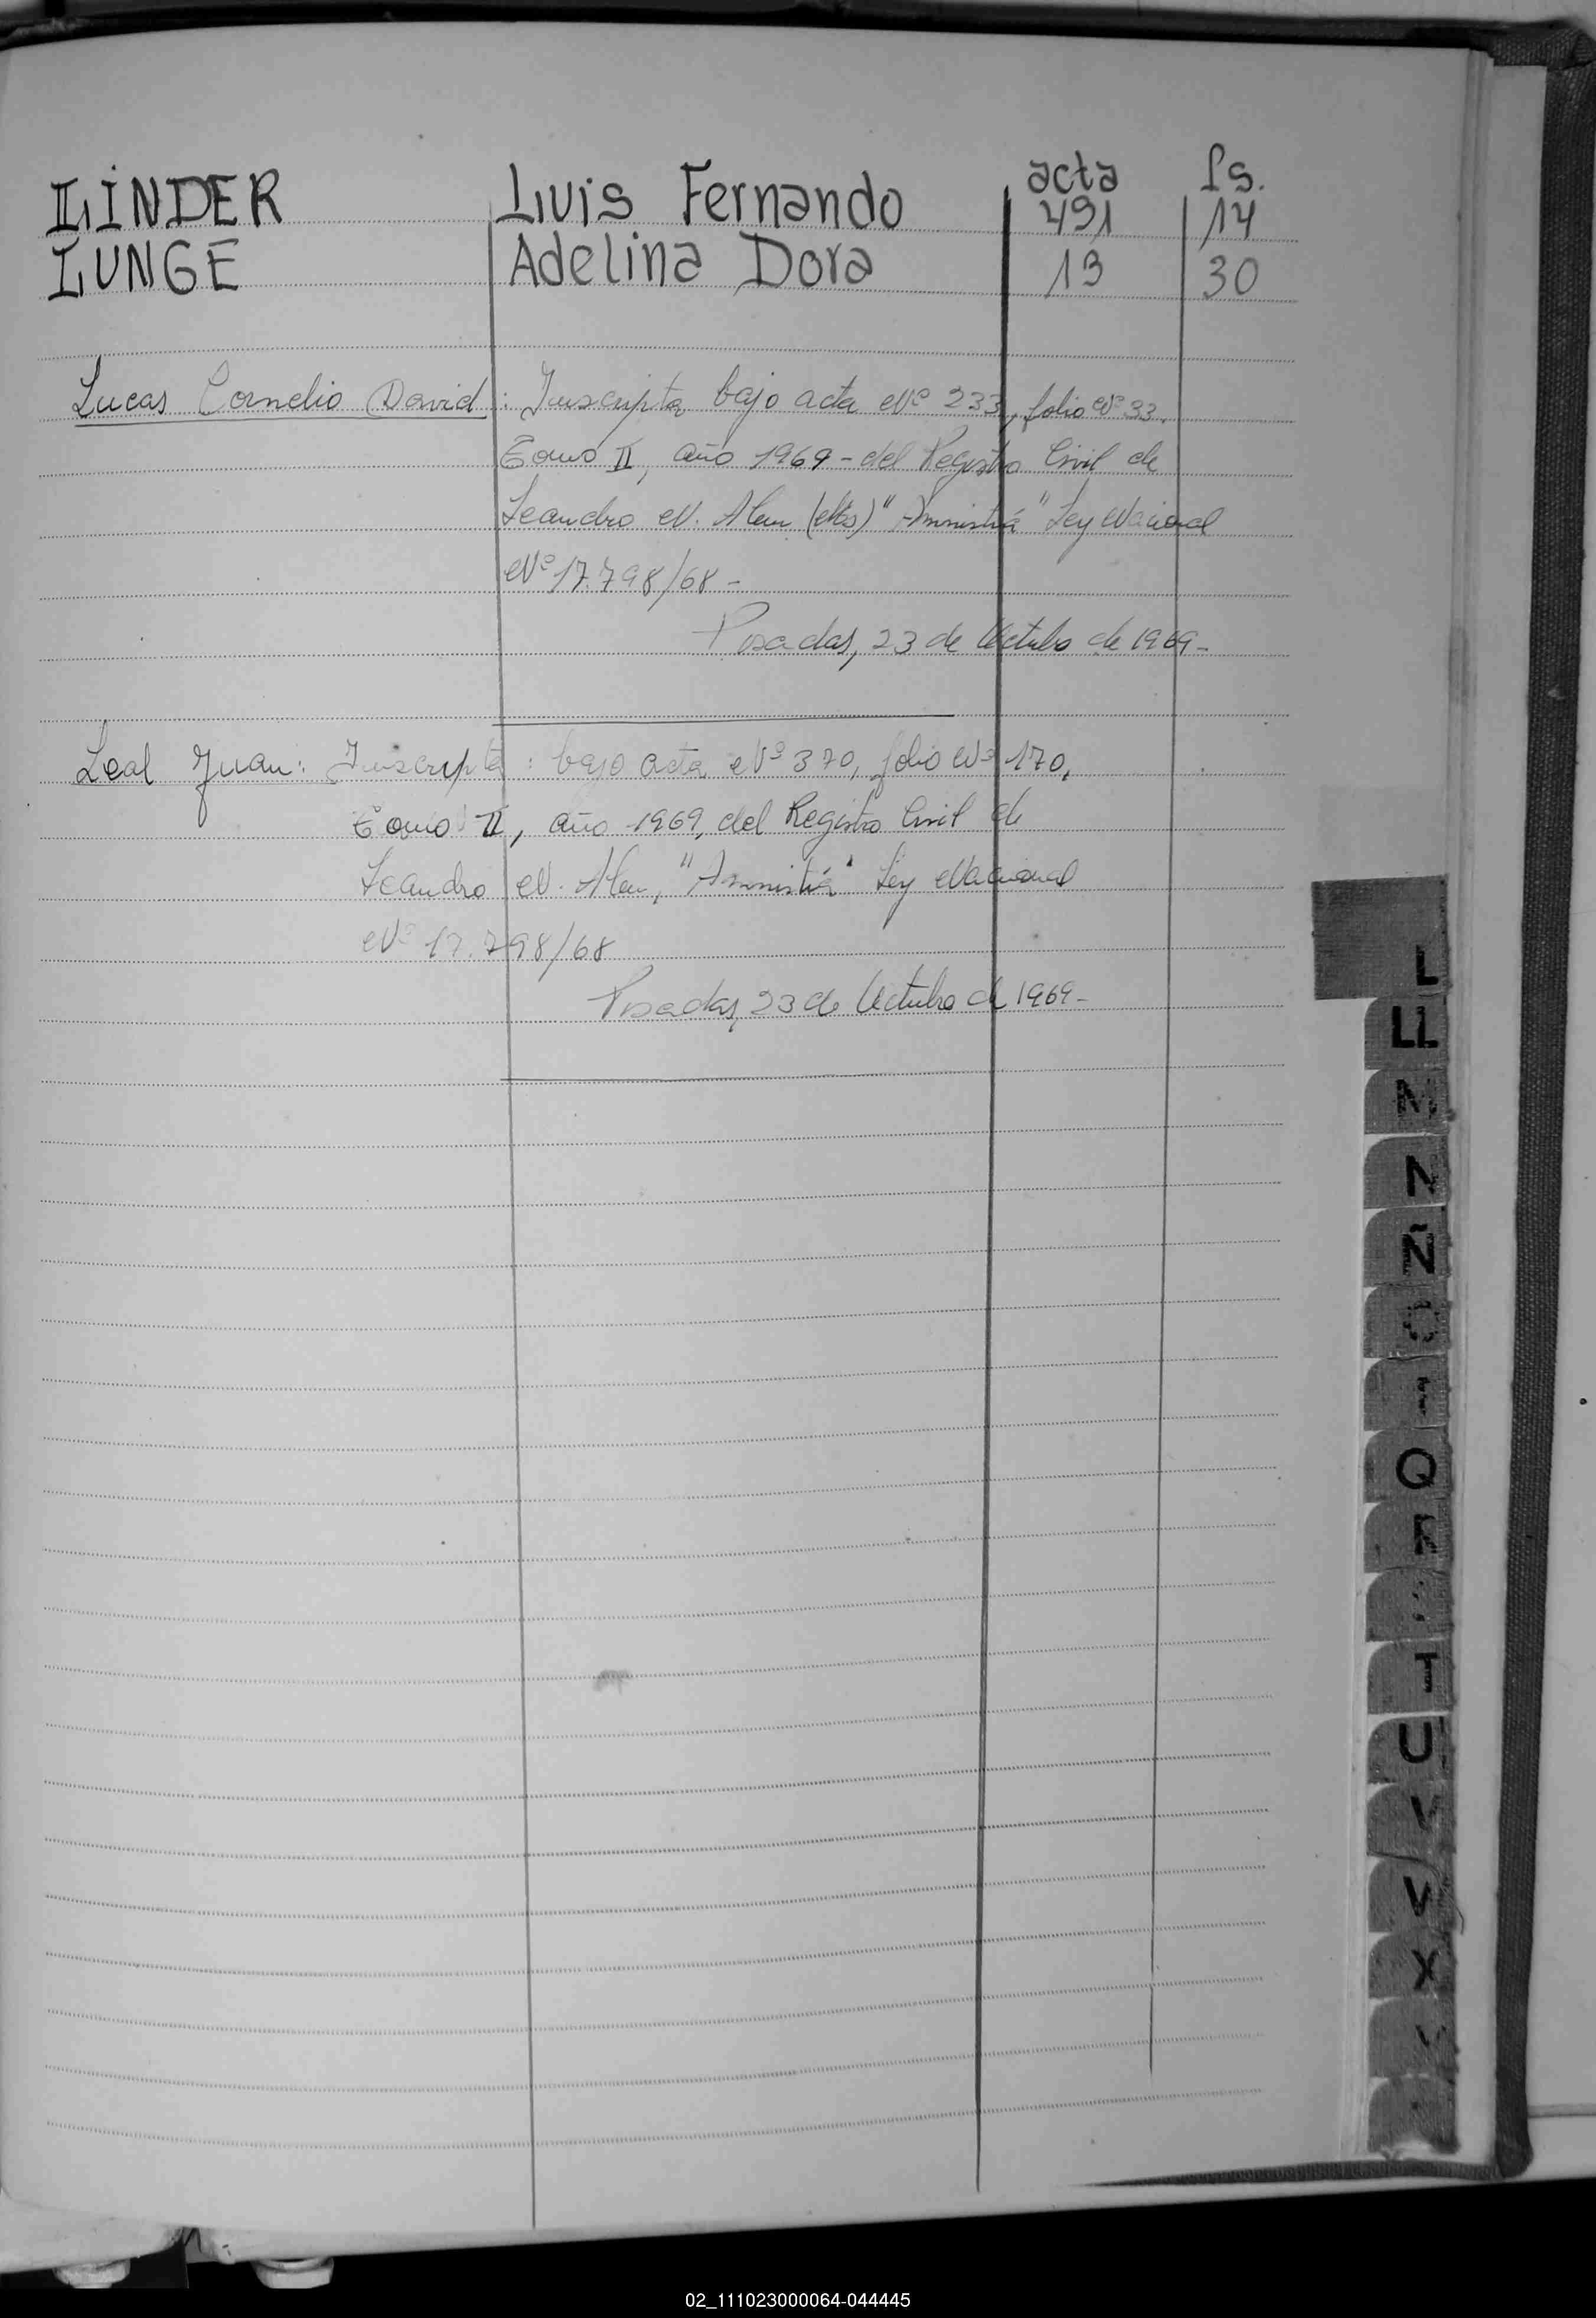 acta fs.
LINDER Luis Fernando 491 14
LUNGE Adelina Dora 19 30
Lucas Cornelio David: Inscripta bajo acta Nº 233, folio Nº 33.
Tomo II, año 1969 - del Registro Civil de
Leandro N. Alem (Mis) "Amnistía" Ley Nacional
Nº 17.798/68 -
Posadas, 23 de Octubre de 1969 -
Leal Juan: Inscripta: bajo acta Nº 370, folio Nº 170,
Tomo II, año 1969, del Registro Civil de
Leandro N. Alem, "Amnistía" Ley Nacional
Nº 17.798/68
Posadas, 23 de Octubre de 1969 -
L
LL
M
N
Ñ
Q
T
U
V
X
02_111023000064-044445